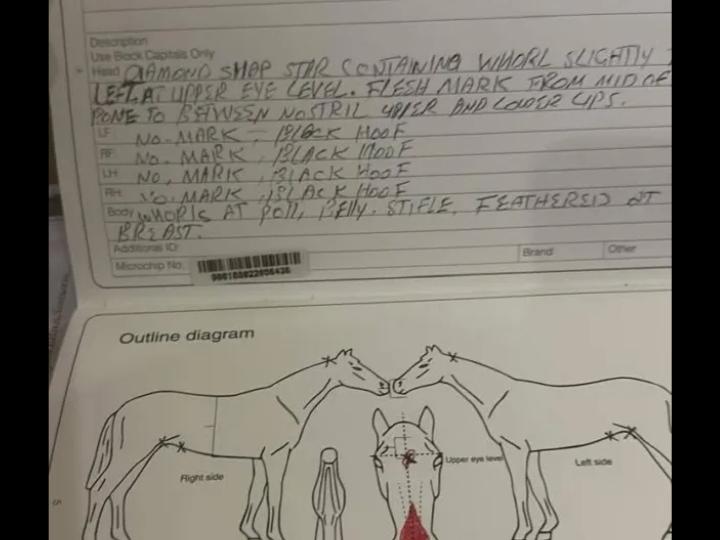 Description
Use Block Capitals Only
Head DIAMOND SHAP STAR CONTAINING WHORL SLIGHTLY
LEFT AT UPPER EYE LEVEL. FLESH MARK FROM MID OF
BONE TO BETWEEN NOSTRIL UPPER AND LOWER LIPS.
LF: NO. MARK, BLACK HOOF
RF: NO. MARK, BLACK HOOF
LH: NO, MARK, BLACK HOOF
RH: NO. MARK, BLACK HOOF
Body WHORLS AT POLL, BELLY. STIFLE, FEATHERED AT
BREAST.
Additional ID:
Microchip No. Brand Other
Outline diagram
Upper eye level
Right side Left side